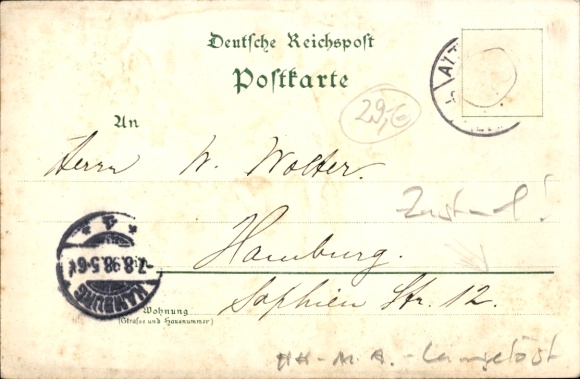 Deutsche Reichspost
Postkarte
ALT
29,€
An
Herrn W. Wolter.
Zustand!
Hamburg.
HAMBURG
* 4 *
7.8.98.5-6
Sophien Str. 12.
Wohnung
(Strasse und Hausnummer)
HH-M.A.-